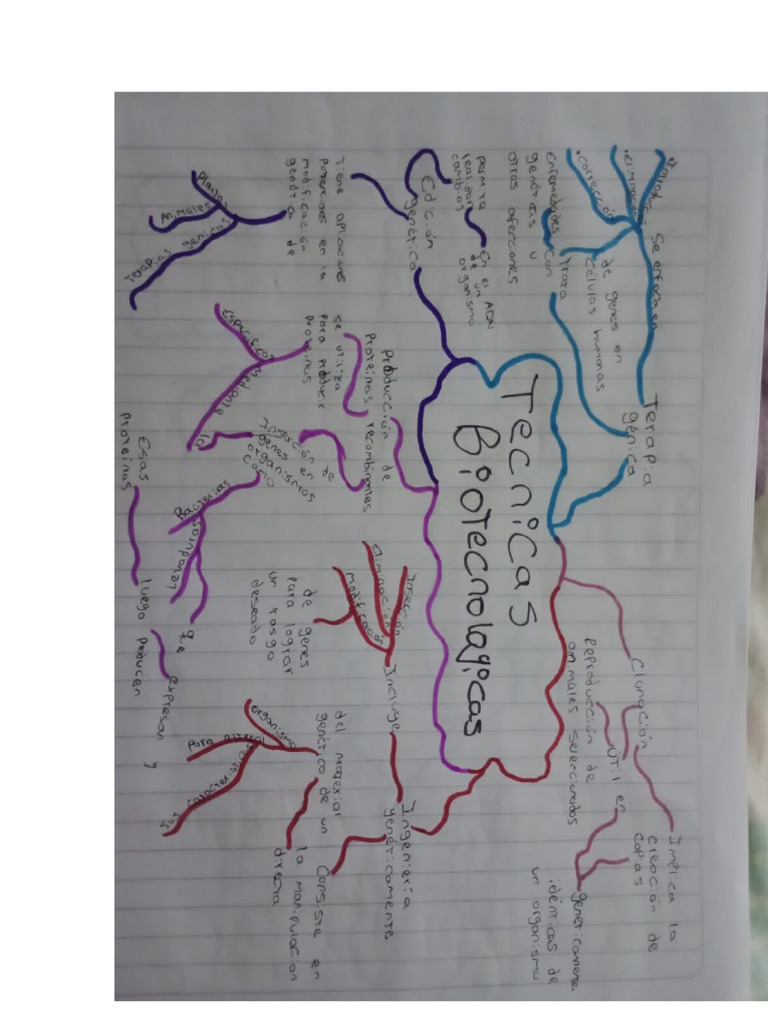 Tecnicas
Biotecnologicas
Terapia
génica
Se enfoca en
.eliminación
.corrección
de genes en
células humanas
Trata
enfermedades con
genéticas u
otras afecciones
Edición
genética
permite
realizar
cambios
En el ADN
de un
organismo
Tiene aplicaciones
potenciales en la
modificación
genética de
Plantas
Animales
Terapias génicas
Producción de
Proteínas recombinantes
se utiliza
para producir
Proteínas
Específicas
Inserción de
genes en
organismos
como
Bacterias
que
expresan y
luego producen
Esas
Proteínas
Ingeniería
genéticamente
Consiste en
la manipulación
directa
del material
genético de un
organismo
Para alterar
sus características
Incluye
Inserción
eliminación
modificación
de genes
para lograr
un rasgo
deseado
Clonación
Implica la
creación de
copias
genéticamente
idénticas de
un organismo
ÚTil en
Reproducción de
animales seleccionados